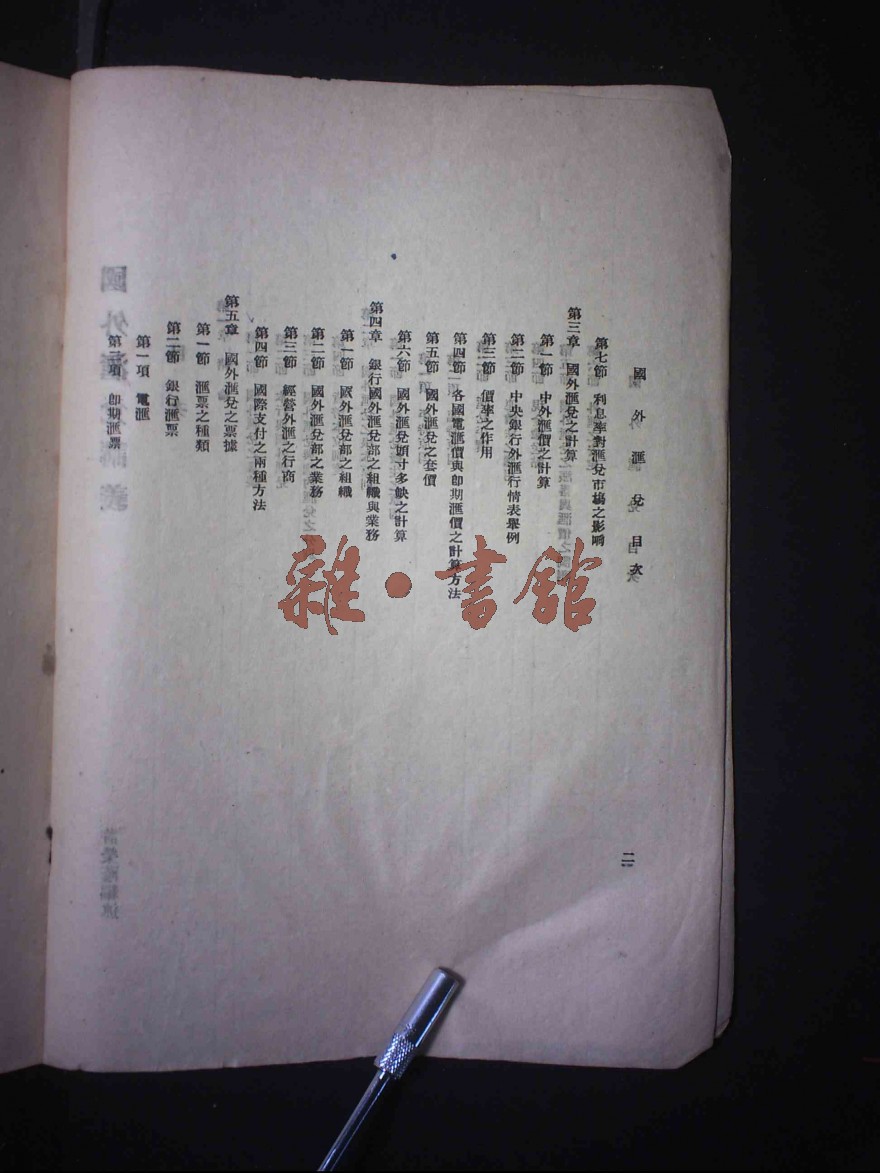 國外滙兌目次
二
第七節 利息率對滙兌市場之影响
第三章 國外滙兌之計算
第一節 中外滙價之計算
第二節 中央銀行外滙行情表舉例
第三節 價率之作用
第四節 各國電滙價與卽期滙價之計算方法
第五節 國外滙兌之套價
第六節 國外滙兌頭寸多缺之計算
第四章 銀行國外滙兌部之組織與業務
第一節 國外滙兌部之組織
第二節 國外滙兌部之業務
第三節 經營外滙之行商
第四節 國際支付之兩種方法
第五章 國外滙兌之票據
第一節 滙票之種類
第二節 銀行滙票
第一項 電滙
第二項 卽期滙票
雜·書館